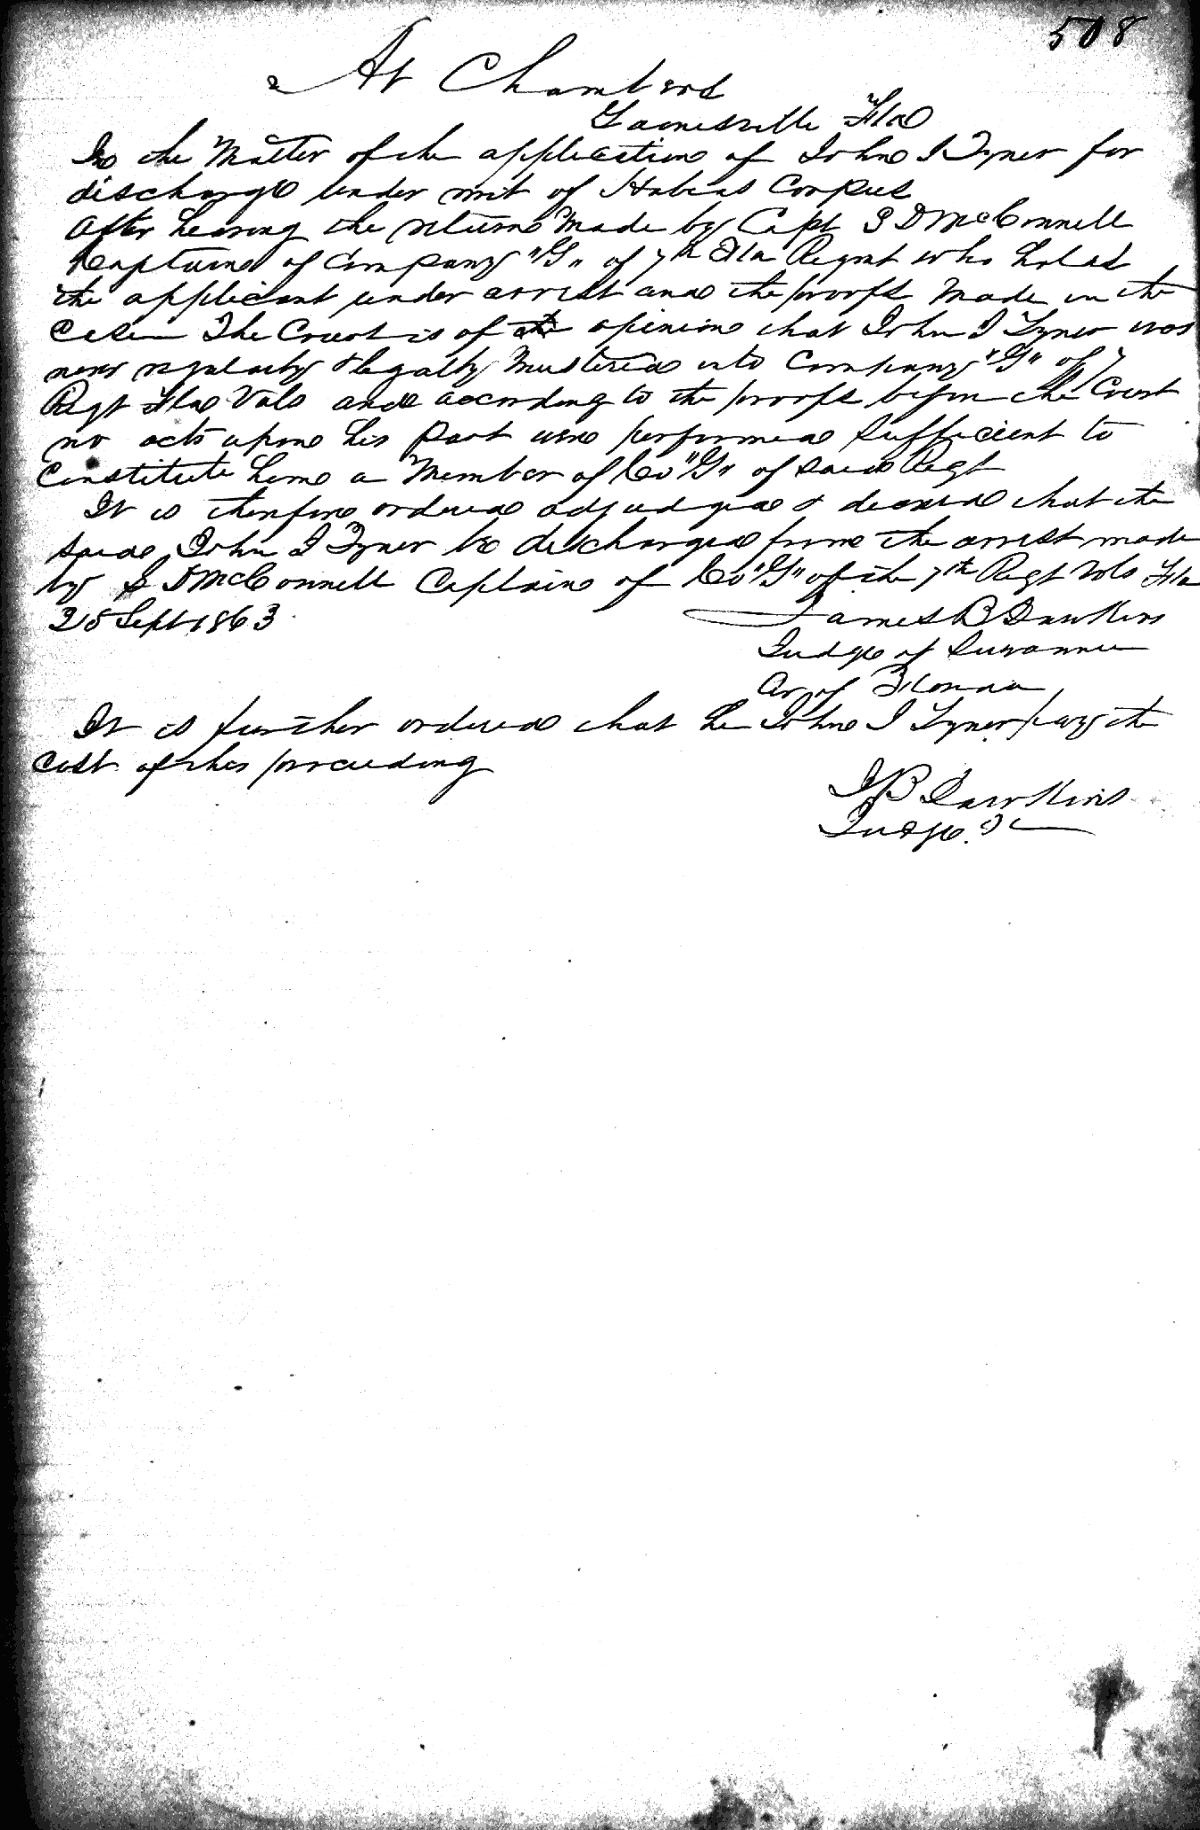 508
At Chambers
Gainesville Fla
In the Matter of the application of John I Tyner for
discharge under writ of Habeas Corpus
After hearing the return Made by Capt S D McConnell
Captain of Company "G" of 7th Fla Regmt who holds
the applicant under arrest and the proofs Made in the
Case The Court is of the opinion that John I Tyner was
never regularly & legally Mustered into Company "G" of 7
Regt Fla Vols and according to the proofs before the Court
no acts upon his part were performed sufficient to
Constitute him a Member of Co "G" of said Regt
It is therefore ordered adjudged & decreed that the
said John I Tyner be discharged from the arrest made
by S D McConnell Captain of Co "G" of the 7th Regt Vols Fla
25 Sept 1863
James B Dawkins
Judge of Suwannee
Cir of Florida
It is further ordered that he John I Tyner pay the
Cost of this proceeding
J B Dawkins
Judge &c